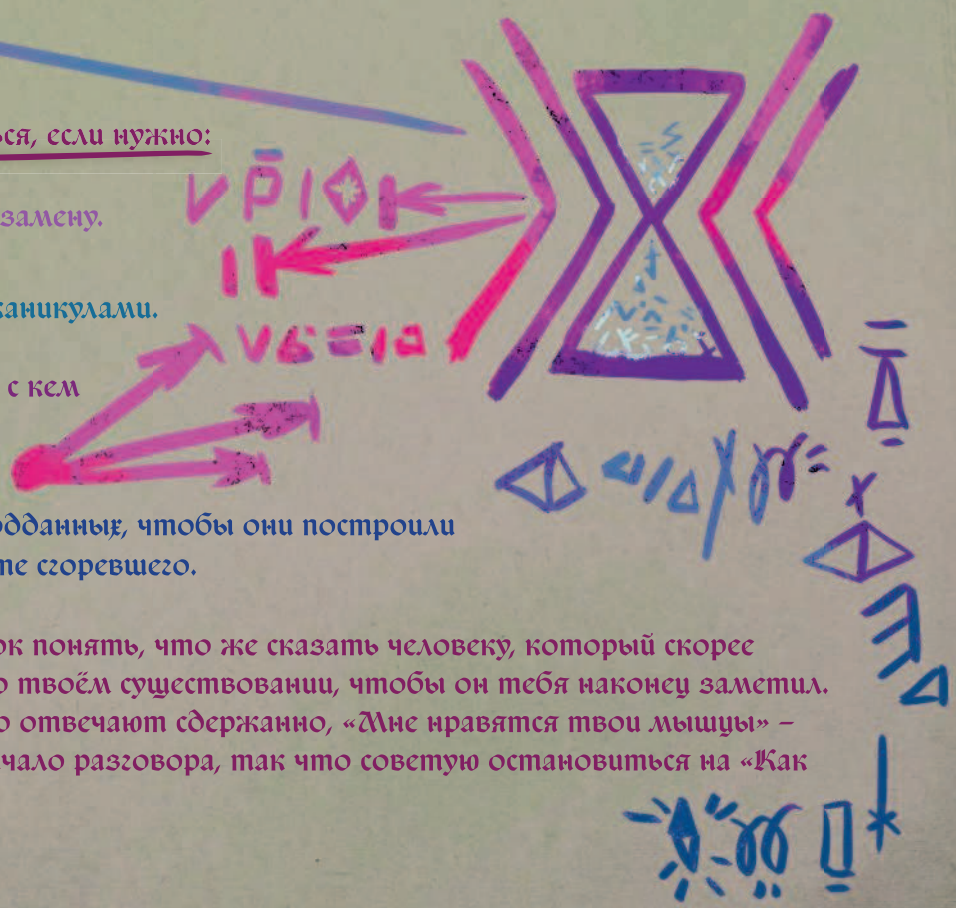 ся, если нужно:
замену.
каникулами.
с кем
одданных, чтобы они построили
те сгоревшего.
ок понять, что же сказать человеку, который скорее
о твоём существовании, чтобы он тебя наконец заметил.
о отвечают сдержанно, «Мне нравятся твои мышцы» –
чало разговора, так что советую остановиться на «Как